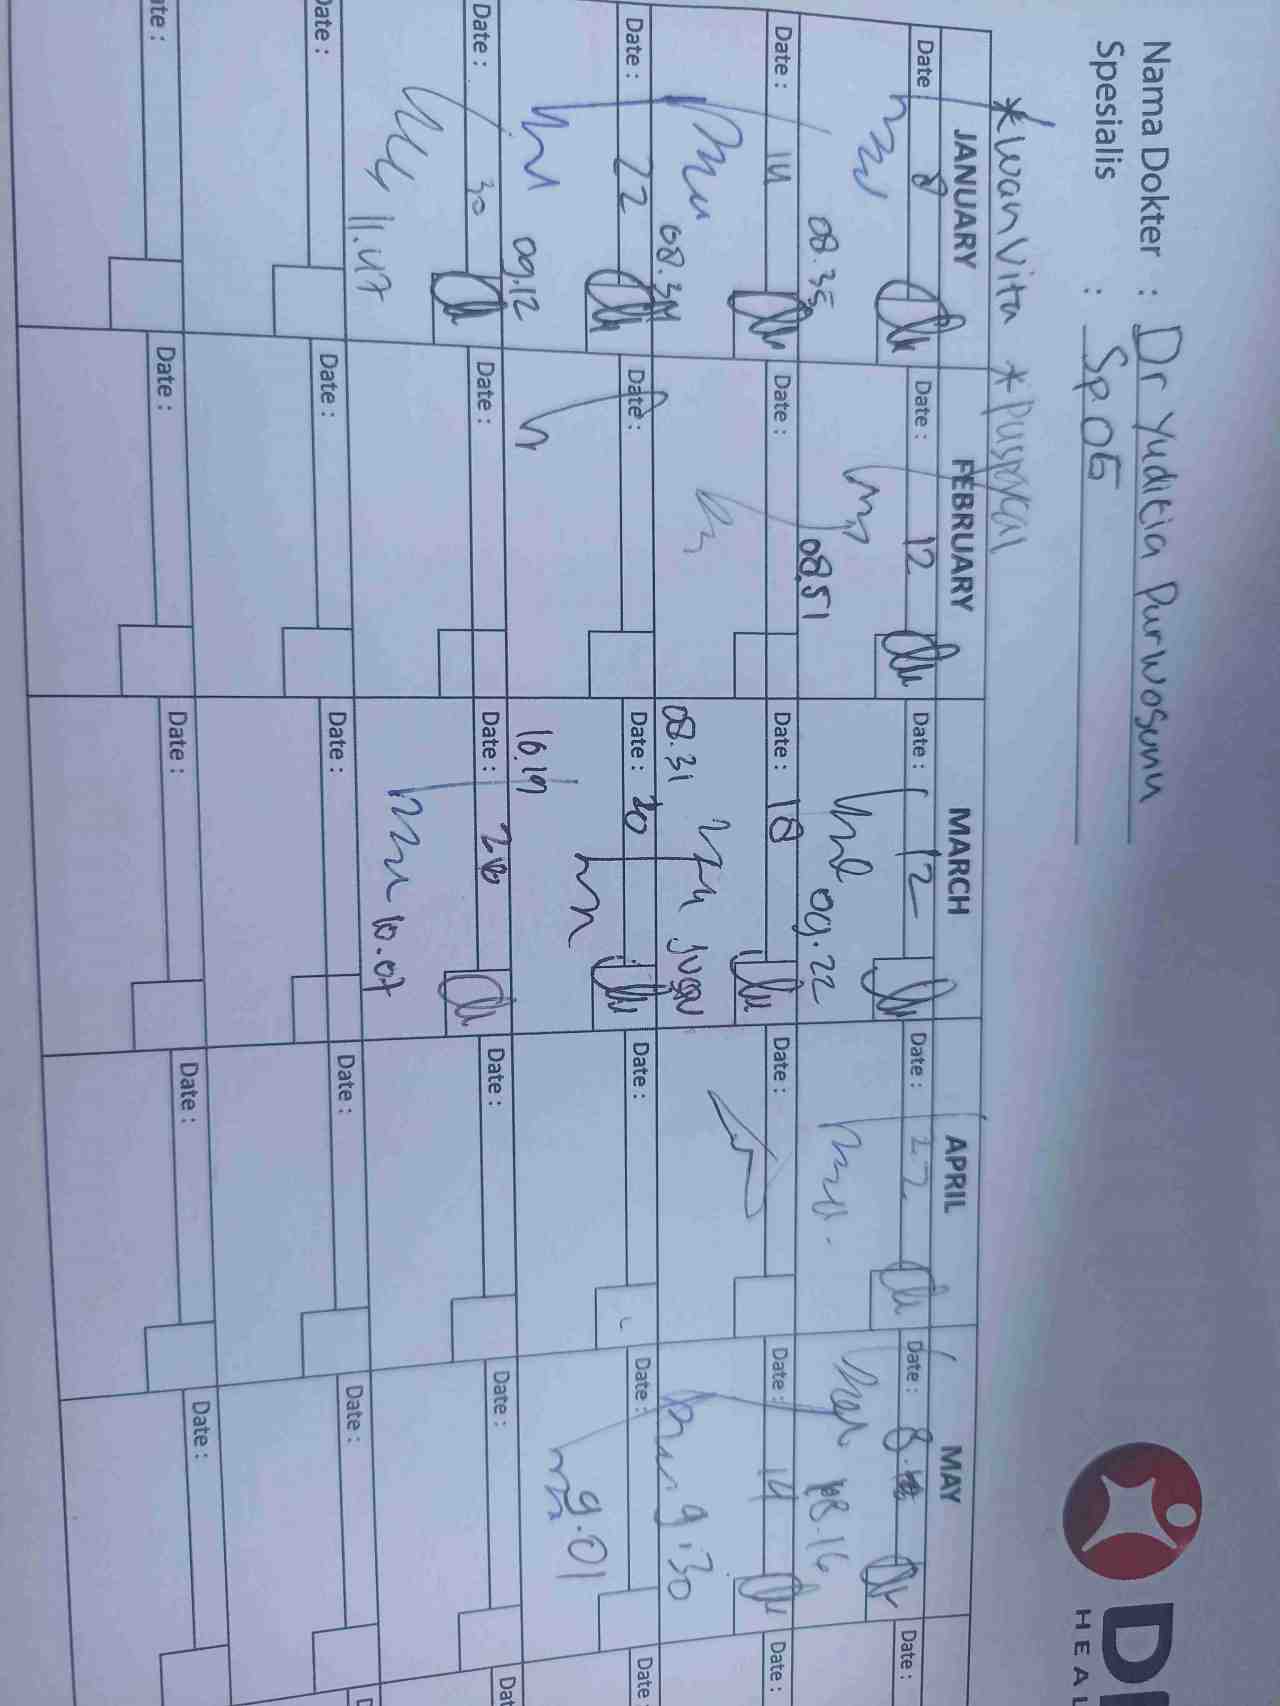 Nama Dokter : Dr Yuditia Purwosunu
Spesialis : Sp.OG
D
HEAL
*Iwan Vita *Puspoycal
JANUARY FEBRUARY MARCH APRIL MAY
Date 8 Date : 12 Date : 12 Date : 22 Date : 8. Date :
08.35 08.51 09.22 08.16
Date : 14 Date : Date : 18 Date : Date : 14 Date :
08.34 08.31 9.30
Date : 22 Date : Date : 20 Date : Date : Date :
09.12 10.19 9.01
Date : 30 Date : Date : 26 Date : Date : Dat
11.47 10.07
Date : Date : Date : Date : Date : D
ate : Date : Date : Date : Date :